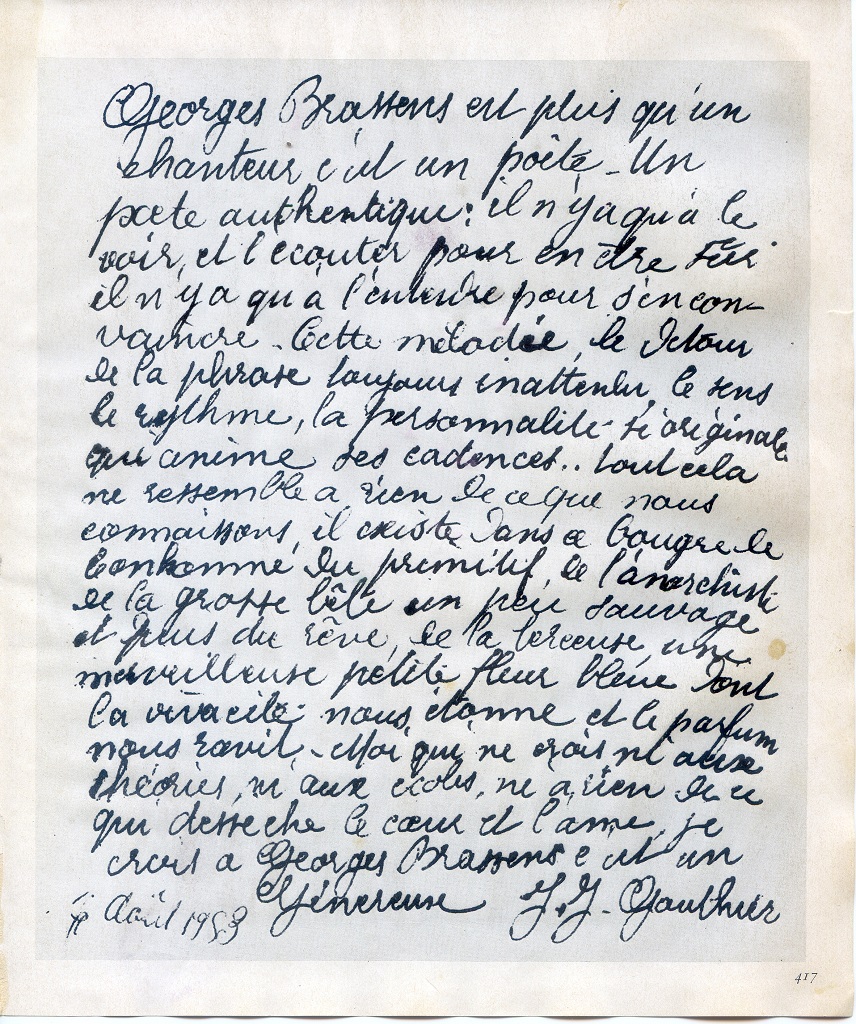 Georges Brassens est plus qu'un
chanteur c'est un poète - Un
poete authentique: il n'y a qu'à le
voir, et l'ecouter pour en être sûr
il n'y a qu'à l'entendre pour s'en con-
vaincre. Cette mélodie, le detour
de la phrase toujours inattendu, le sens
le rythme, la personnalité si originale
qui anime ses cadences.. tout cela
ne ressemble a rien de ce que nous
connaissons, il existe dans ce bougre de
bonhomme du primitif, de l'anarchiste
de la grosse bête un peu sauvage
et puis du rêve, de la berceuse, une
merveilleuse petite fleur bleue dont
la vivacité nous étonne et le parfum
nous ravit. - Moi qui ne crois ni aux
théories, ni aux écoles, ne a rien de ce
qui desseche le cœur et l'ame, je
crois a Georges Brassens c'est un
Généreux J.J. Gauthier
Août 1953
417